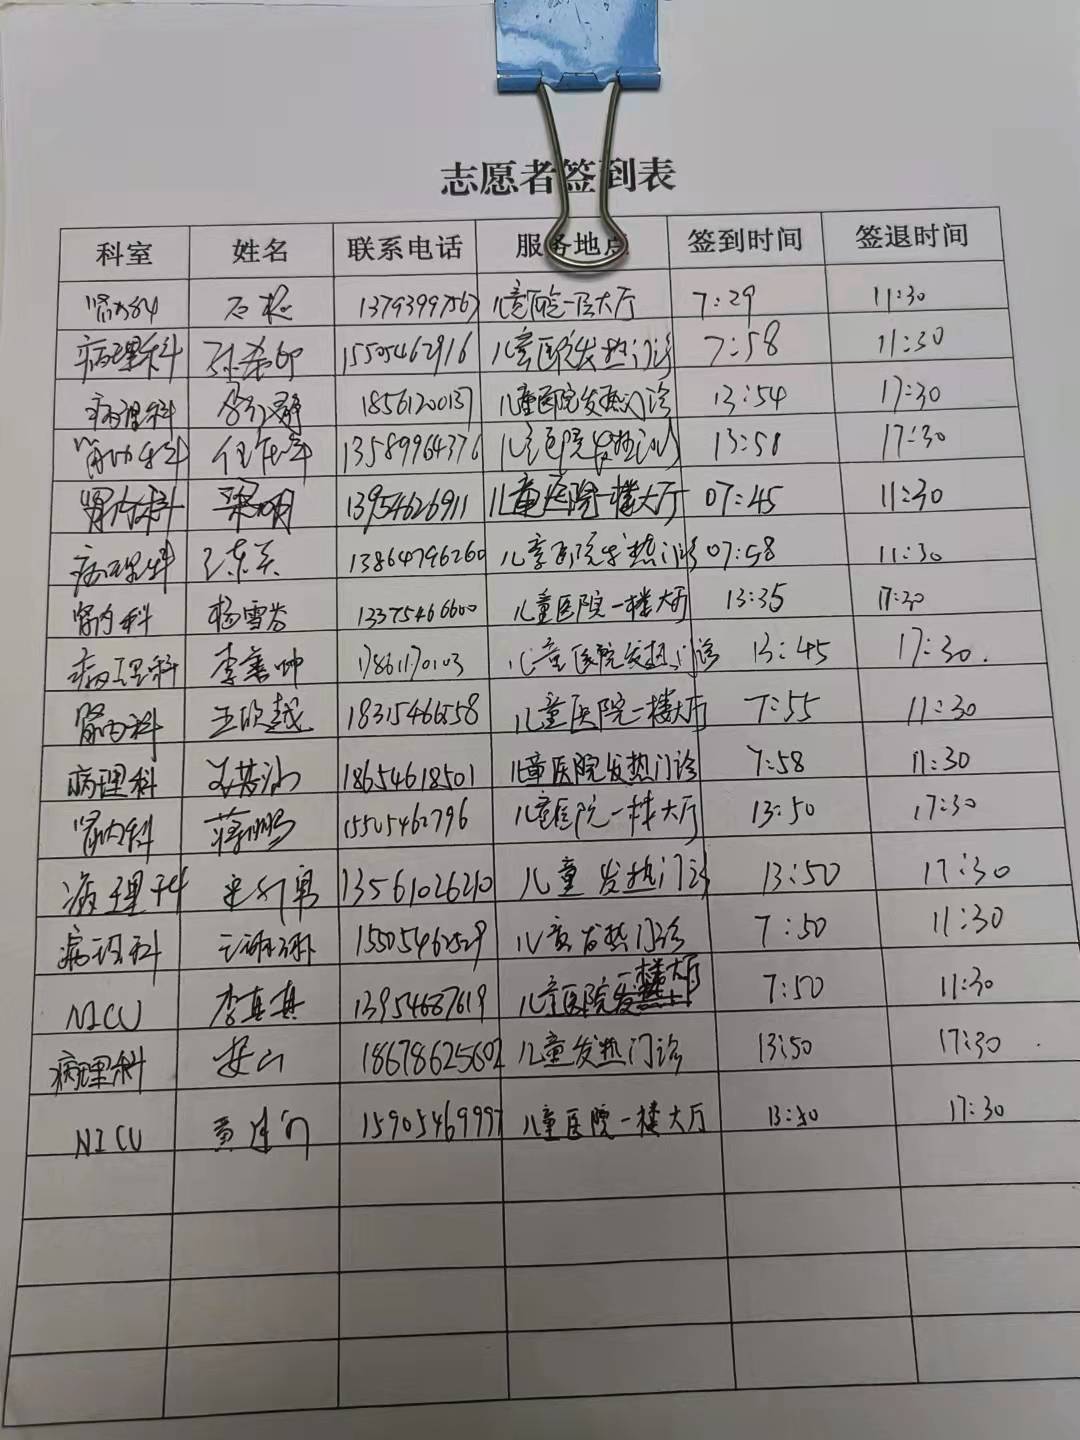 志愿者签到表
科室 姓名 联系电话 服务地点 签到时间 签退时间
肾内科 石 13793997567 儿童医院一区大厅 7:29 11:30
病理科 15505462916 儿童医院发热门诊 7:58 11:30
病理科 18561200137 儿童医院发热门诊 13:54 17:30
肾内科 任 13589964376 儿童医院发热门诊 13:58 17:30
肾内科 梁明 13954626911 儿童医院一楼大厅 07:45 11:30
病理科 13864796260 儿童医院发热门诊 07:58 11:30
肾内科 杨雪 13375466600 儿童医院一楼大厅 13:35 17:30
病理科 李 17861170103 儿童医院发热门诊 13:45 17:30.
肾内科 王欣越 18315466558 儿童医院一楼大厅 7:55 11:30
病理科 18654618501 儿童医院发热门诊 7:58 11:30
肾内科 蒋鹏 15505462796 儿童医院一楼大厅 13:50 17:30
病理科 13561026210 儿童 发热门诊 13:50 17:30
病理科 15505462529 儿童发热门诊 7:50 11:30
NICU 李真真 13954687619 儿童医院一楼大厅 7:50 11:30
病理科 安 18678625602 儿童发热门诊 13:50 17:30
NICU 黄 15905469997 儿童医院一楼大厅 13:30 17:30